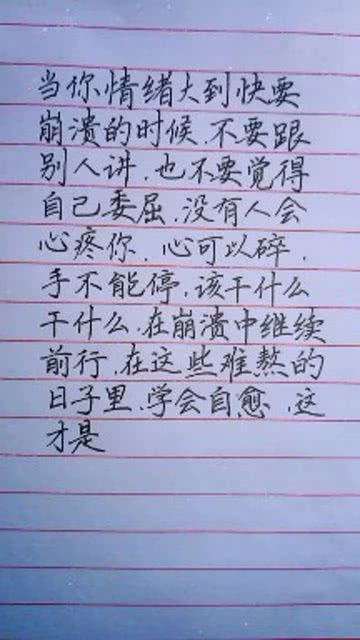 当你情绪大到快要
崩溃的时候.不要跟
别人讲.也不要觉得
自己委屈.没有人会
心疼你.心可以碎.
手不能停.该干什么
干什么.在崩溃中继续
前行.在这些难熬的
日子里.学会自愈.这
才是